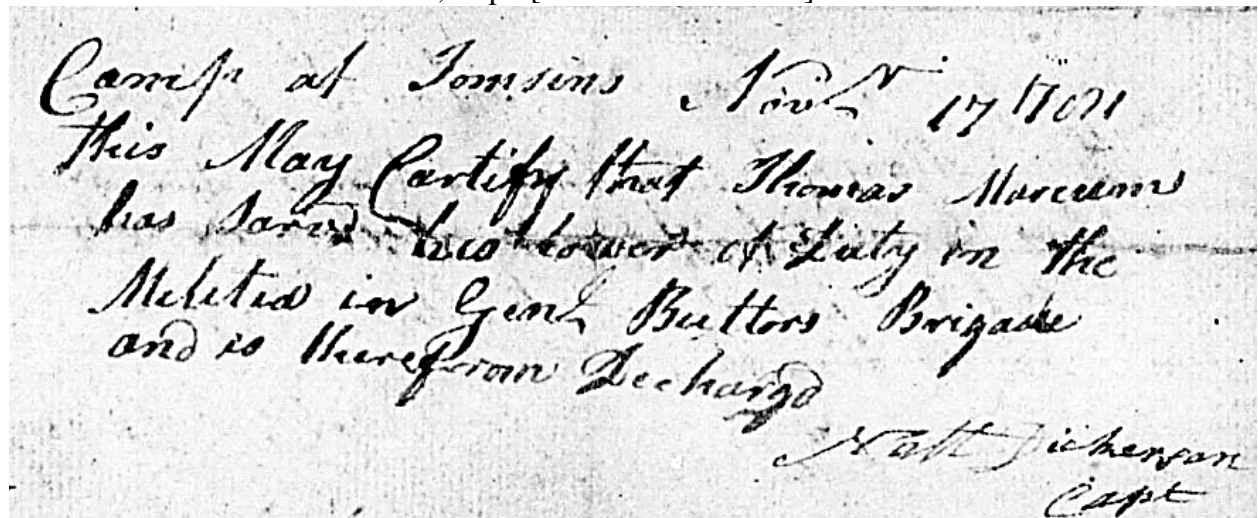 Camp at Tomsins Novr 17
this May Cartify that Thomas Marcum
has Sarvd his tower of Duty in the
Melitia in Genl Buttors Brigade
and is therefrom Dechargd
Natt Dickerson
Capt